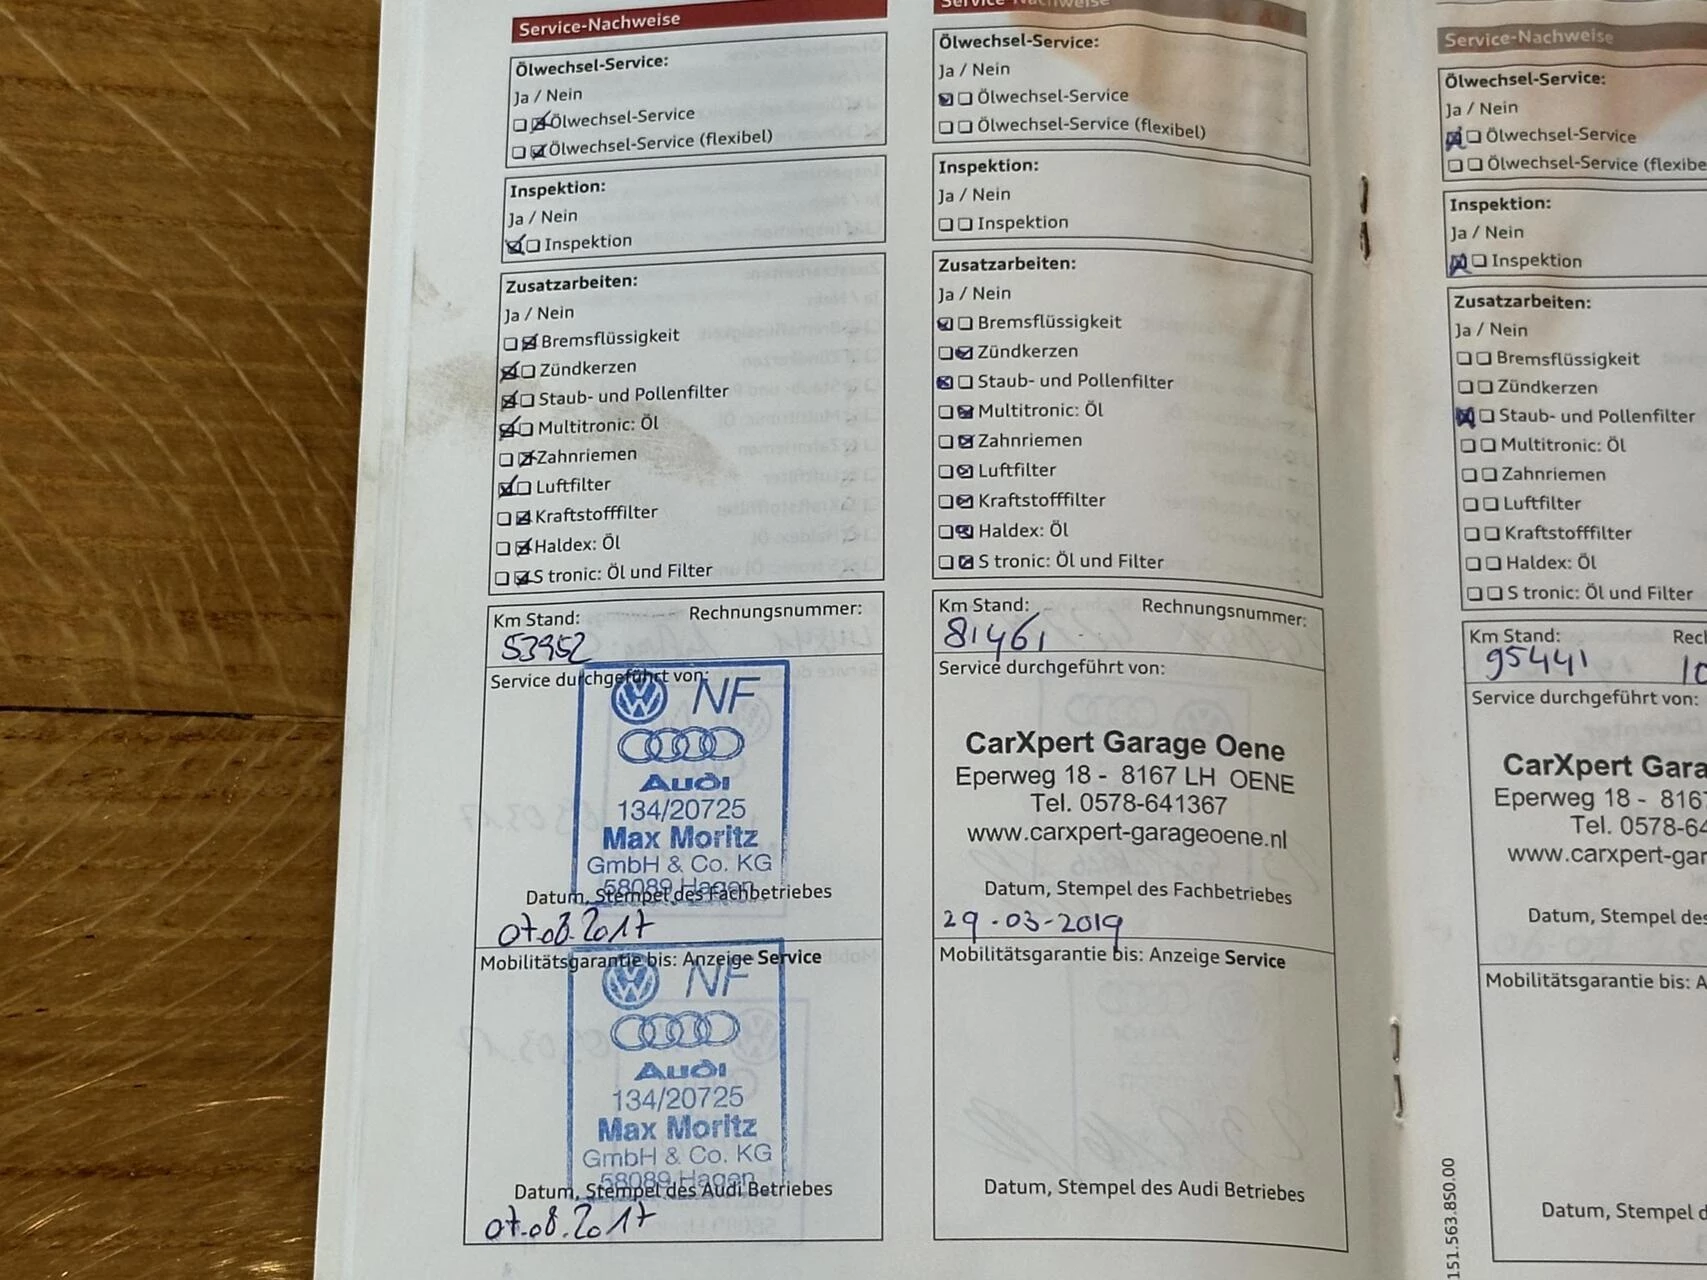 Service-Nachweise
Ölwechsel-Service:
Ja / Nein
Ölwechsel-Service
Ölwechsel-Service (flexibel)
Inspektion:
Ja / Nein
Inspektion
Zusatzarbeiten:
Ja / Nein
Bremsflüssigkeit
Zündkerzen
Staub- und Pollenfilter
Multitronic: Öl
Zahnriemen
Luftfilter
Kraftstofffilter
Haldex: Öl
S tronic: Öl und Filter
Km Stand: Rechnungsnummer:
53952
Service durchgeführt von:
NF
Audi
134/20725
Max Moritz
GmbH & Co. KG
58089 Hagen
Datum, Stempel des Fachbetriebes
07.08.2017
Mobilitätsgarantie bis: Anzeige Service
NF
Audi
134/20725
Max Moritz
GmbH & Co. KG
58089 Hagen
Datum, Stempel des Audi Betriebes
07.08.2017
Service-Nachweise
Ölwechsel-Service:
Ja / Nein
Ölwechsel-Service
Ölwechsel-Service (flexibel)
Inspektion:
Ja / Nein
Inspektion
Zusatzarbeiten:
Ja / Nein
Bremsflüssigkeit
Zündkerzen
Staub- und Pollenfilter
Multitronic: Öl
Zahnriemen
Luftfilter
Kraftstofffilter
Haldex: Öl
S tronic: Öl und Filter
Km Stand: Rechnungsnummer:
81461
Service durchgeführt von:
CarXpert Garage Oene
Eperweg 18 - 8167 LH OENE
Tel. 0578-641367
www.carxpert-garageoene.nl
Datum, Stempel des Fachbetriebes
29-03-2019
Mobilitätsgarantie bis: Anzeige Service
Datum, Stempel des Audi Betriebes
Service-Nachweise
Ölwechsel-Service:
Ja / Nein
Ölwechsel-Service
Ölwechsel-Service (flexibe
Inspektion:
Ja / Nein
Inspektion
Zusatzarbeiten:
Ja / Nein
Bremsflüssigkeit
Zündkerzen
Staub- und Pollenfilter
Multitronic: Öl
Zahnriemen
Luftfilter
Kraftstofffilter
Haldex: Öl
S tronic: Öl und Filter
Km Stand: Recl
95441 10
Service durchgeführt von:
CarXpert Gara
Eperweg 18 - 8167
Tel. 0578-64
www.carxpert-gar
Datum, Stempel des
Mobilitätsgarantie bis: A
Datum, Stempel d
151.563.850.00